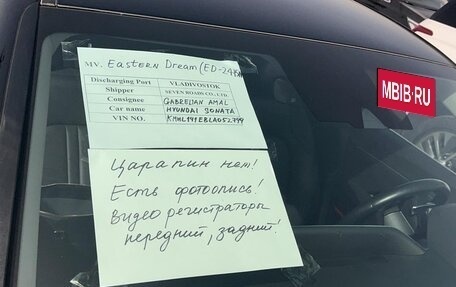 MV. Eastern Dream (ED-24
Discharging Port VLADIVOSTOK
Shipper SEVEN ROADS CO., LTD.
Consignee GABRELIAN AMAL
Car name HYUNDAI SONATA
VIN NO.
Царапин нет!
Есть фотоопись!
Видео регистраторы
передний, задний!
MBIB.RU